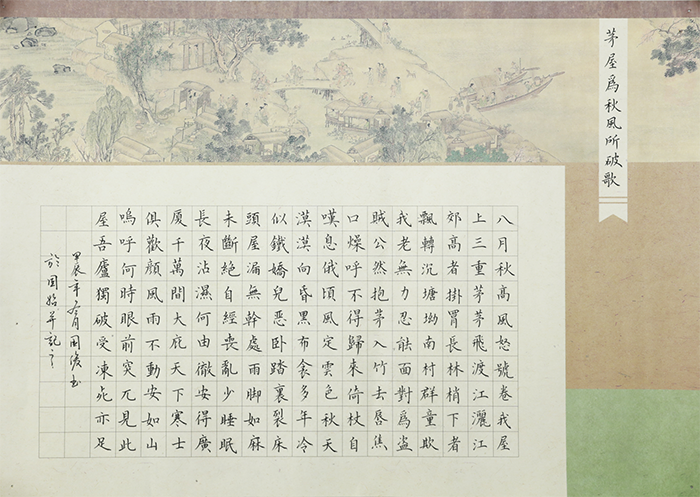 茅屋爲秋風所破歌
八月秋高風怒號卷我屋
上三重茅茅飛渡江灑江
郊高者掛罥長林梢下者
飄轉沉塘坳南村群童欺
我老無力忍能面對爲盜
賊公然抱茅入竹去唇焦
口燥呼不得歸來倚杖自
嘆息俄頃風定雲色秋天
漠漠向昏黑布衾多年冷
似鐵嬌兒惡卧踏裏裂床
頭屋漏無幹處雨脚如麻
未斷絕自經喪亂少睡眠
長夜沾濕何由徹安得廣
厦千萬間大庇天下寒士
俱歡顏風雨不動安如山
嗚呼何時眼前突兀見此
屋吾廬獨破受凍死亦足
甲辰年冬月国俊书
於国并記之